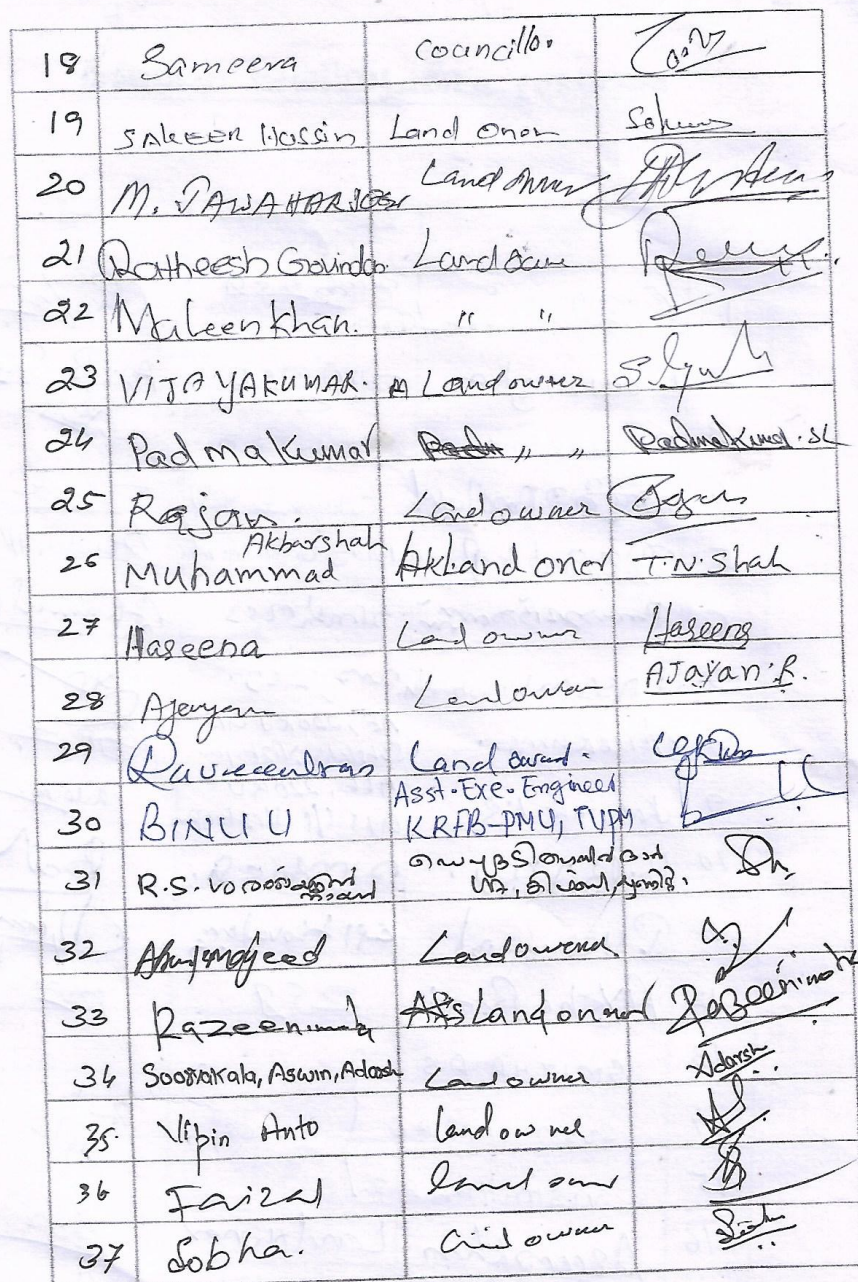 18 Sameera Councillor
19 SAKEER HUSSIN Land oner Sakeer
20 M. JAWAHAR Land owner
21 Ratheesh Govindan Land owner
22 Maleen khan. " "
23 VIJAYAKUMAR. Land owner
24 Padmakumar " " Padmakumar. SL
25 Rajan. Land owner
Akbarshah
26 Muhammad Land oner T.N. Shah
27 Haseena Land owner Haseena
28 Ajayan Land owner AJAYAN. R.
29 Raveendran Land owner.
Asst. Exe. Engineer
30 BINU U KRFB-PMU, TVPM
31 R.S.
32 Abdulmajeed Land owner
33 Razeenimol Land oner Razeenimol
34 Sooryakala, Aswin, Adarsh Land owner Adarsh
35. Vipin Anto land owner
36 Faizal land owner
37 Sobha. owner